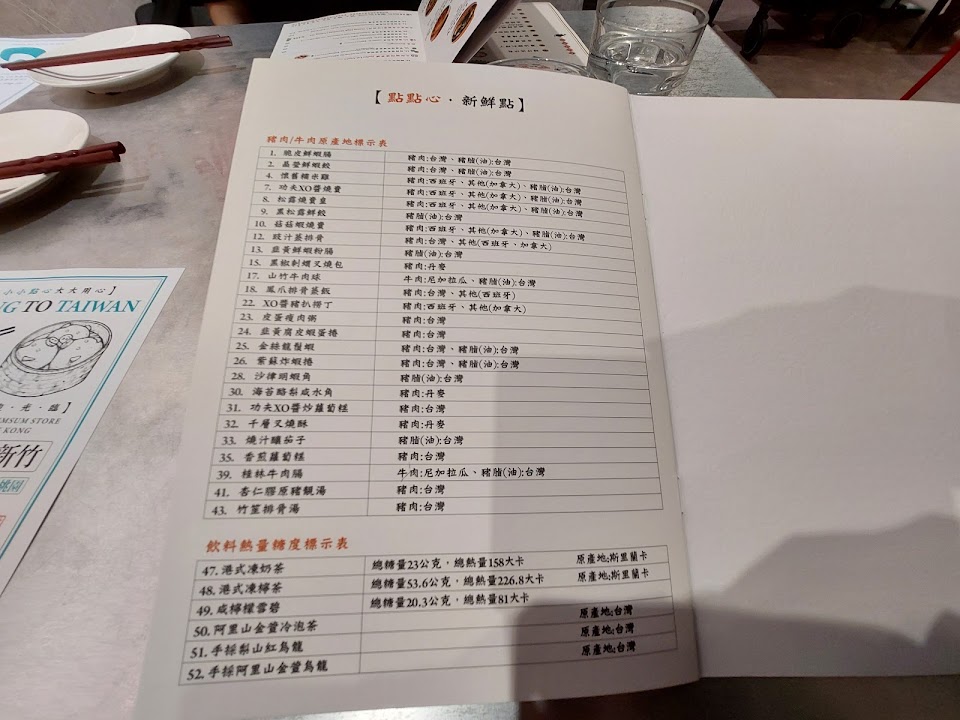 【點點心・新鮮點】
豬肉/牛肉原產地標示表
1. 脆皮鮮蝦腸 豬肉:台灣、豬脂(油):台灣
2. 晶瑩鮮蝦餃 豬肉:台灣、豬脂(油):台灣
4. 懷舊糯米雞 豬肉:西班牙、其他(加拿大)、豬脂(油):台灣
7. 功夫XO醬燒賣 豬肉:西班牙、其他(加拿大)、豬脂(油):台灣
8. 松露燒賣皇 豬肉:西班牙、其他(加拿大)、豬脂(油):台灣
9. 黑松露鮮餃 豬脂(油):台灣
10. 菇菇蝦燒賣 豬肉:西班牙、其他(加拿大)、豬脂(油):台灣
12. 豉汁蒸排骨 豬肉:台灣、其他(西班牙、加拿大)
13. 韭黃鮮蝦粉腸 豬脂(油):台灣
15. 黑椒剌蝟叉燒包 豬肉:丹麥
17. 山竹牛肉球 牛肉:尼加拉瓜、豬脂(油):台灣
18. 鳳爪排骨蒸飯 豬肉:台灣、其他(西班牙)
22. XO醬豬扒撈丁 豬肉:西班牙、其他(加拿大)
23. 皮蛋瘦肉粥 豬肉:台灣
24. 韭黃腐皮蝦蛋捲 豬肉:台灣
25. 金絲龍鬚蝦 豬肉:台灣、豬脂(油):台灣
26. 紫蘇炸蝦捲 豬肉:台灣、豬脂(油):台灣
28. 沙律明蝦角 豬脂(油):台灣
30. 海苔酪梨咸水角 豬肉:丹麥
31. 功夫XO醬炒蘿蔔糕 豬肉:台灣
32. 千層叉燒酥 豬肉:丹麥
33. 燒汁釀茄子 豬脂(油):台灣
35. 香煎蘿蔔糕 豬肉:台灣
39. 桂林牛肉腸 牛肉:尼加拉瓜、豬脂(油):台灣
41. 杏仁膠原豬骨湯 豬肉:台灣
43. 竹笙排骨湯 豬肉:台灣
飲料熱量糖度標示表
47. 港式凍奶茶 總糖量23公克，總熱量158大卡 原產地:斯里蘭卡
48. 港式凍檸茶 總糖量53.6公克，總熱量226.8大卡 原產地:斯里蘭卡
49. 咸檸檬雪碧 總糖量20.3公克，總熱量81大卡
50. 阿里山金萱冷泡茶 原產地:台灣
51. 手採梨山紅烏龍 原產地:台灣
52. 手採阿里山金萱烏龍 原產地:台灣
小小點心大大用心】
NG TO TAIWAN
光・臨】
MSUM STORE
KONG
新竹
桃園